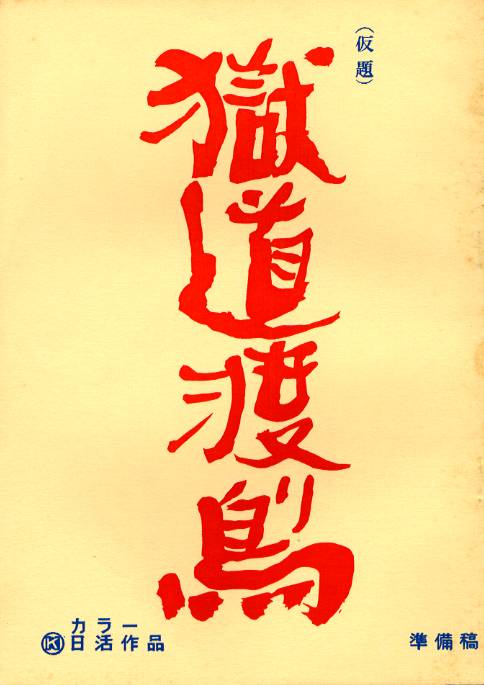 （仮題）
獄道渡り鳥
カラー
日活作品
準備稿